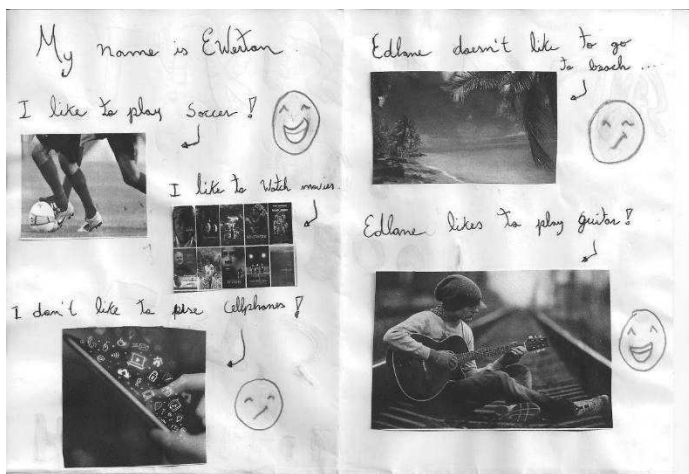 My name is EWerton.
I like to play Soccer!
I like to Watch movies.
I don't like to use Cellphones!
Edlane doesn't like to go
to beach ...
Edlane likes to play guitar!